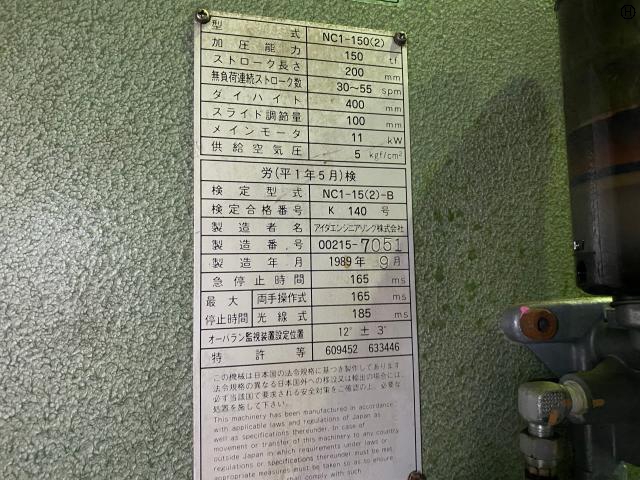 型式 NC1-150(2)
加圧能力 150 tf
ストローク長さ 200 mm
無負荷連続ストローク数 30~55 spm
ダイハイト 400 mm
スライド調節量 100 mm
メインモータ 11 kW
供給空気圧 5 kgf/cm²
労(平1年5月)検
検定型式 NC1-15(2)-B
検定合格番号 K 140 号
製造者名 アイダエンジニアリング株式会社
製造番号 00215-7051
製造年月 1989年 9月
急停止時間 165 ms
最大停止時間 両手操作式 165 ms
光線式 185 ms
オーバラン監視装置設定位置 12° ± 3°
特許等 609452 633446
この機械は日本国の法令規格に基づき製作してあります
法令規格の異なる日本国外への移設又は輸出の場合には、
必ず当該国で要求される安全対策をご確認の上、必要な
処置を施して下さい。
This machinery has been manufactured in accordance
with applicable laws and regulations of Japan as
well as specifications thereunder. In case of
movement or transfer of this machinery to any country
outside Japan in which requirements under laws or
regulations or specifications thereunder must be met
appropriate measures must be taken so as to ensure
shall comply with such